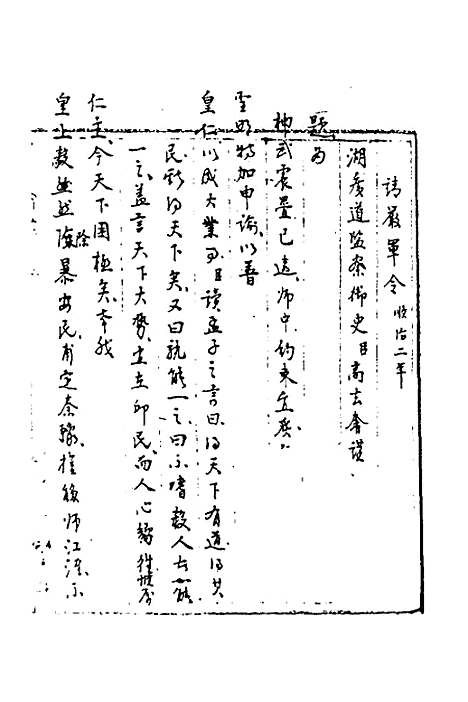 請嚴軍令順治二年
湖廣道監察御史臣高去奢謹
題為
神武震疊已遠師中約束宜嚴
聖明特加申諭以普
皇仁以成大業事臣讀孟子之言曰得天下有道得其
民斯得天下矣又曰孰能一之曰不嗜殺人者能
一之蓋言天下大勢主在卬民而人心
仁主今天下困極矣幸我
皇上救除暴安民甫定秦師江淮示